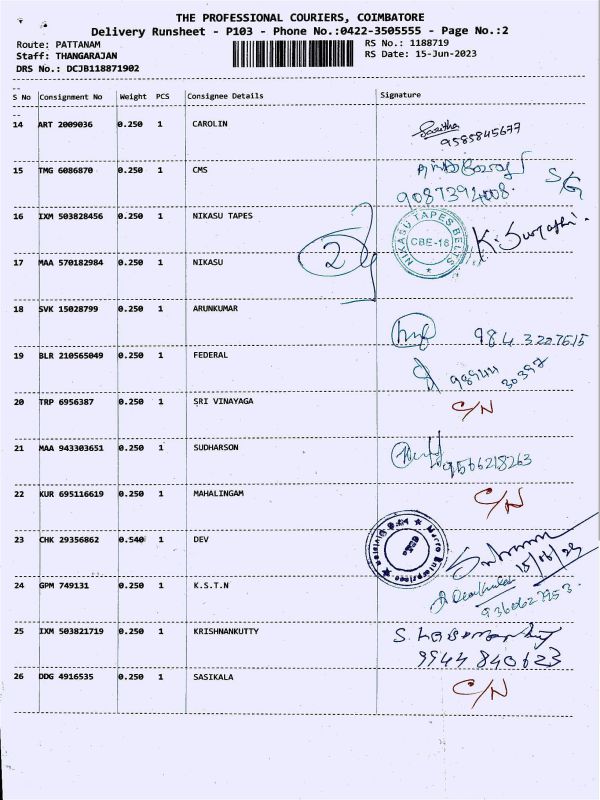 THE PROFESSIONAL COURIERS, COIMBATORE
Delivery Runsheet - P103 - Phone No.:0422-3505555 - Page No.:2
Route: PATTANAM
RS No.: 1188719
Staff: THANGARAJAN
RS Date: 15-Jun-2023
DRS No.: DCJB118871902
S No Consignment No Weight PCS Consignee Details Signature
14 ART 2009036 0.250 1 CAROLIN
Saritha
9585845677
15 TMG 6086870 0.250 1 CMS
9087394008.
S/G
16 IXM 503828456 0.250 1 NIKASU TAPES
NIKASU TAPES BELTS
CBE-16
2
17 MAA 570182984 0.250 1 NIKASU
18 SVK 15028799 0.250 1 ARUNKUMAR
984 3207515
19 BLR 210565049 0.250 1 FEDERAL
98944
30397
20 TRP 6956387 0.250 1 SRI VINAYAGA
C/N
21 MAA 943303651 0.250 1 SUDHARSON
9566218263
22 KUR 695116619 0.250 1 MAHALINGAM
C/N
23 CHK 29356862 0.540 1 DEV
15/06/23
24 GPM 749131 0.250 1 K.S.T.N
9360627953.
25 IXM 503821719 0.250 1 KRISHNANKUTTY
9944 840623
26 DDG 4916535 0.250 1 SASIKALA
C/N